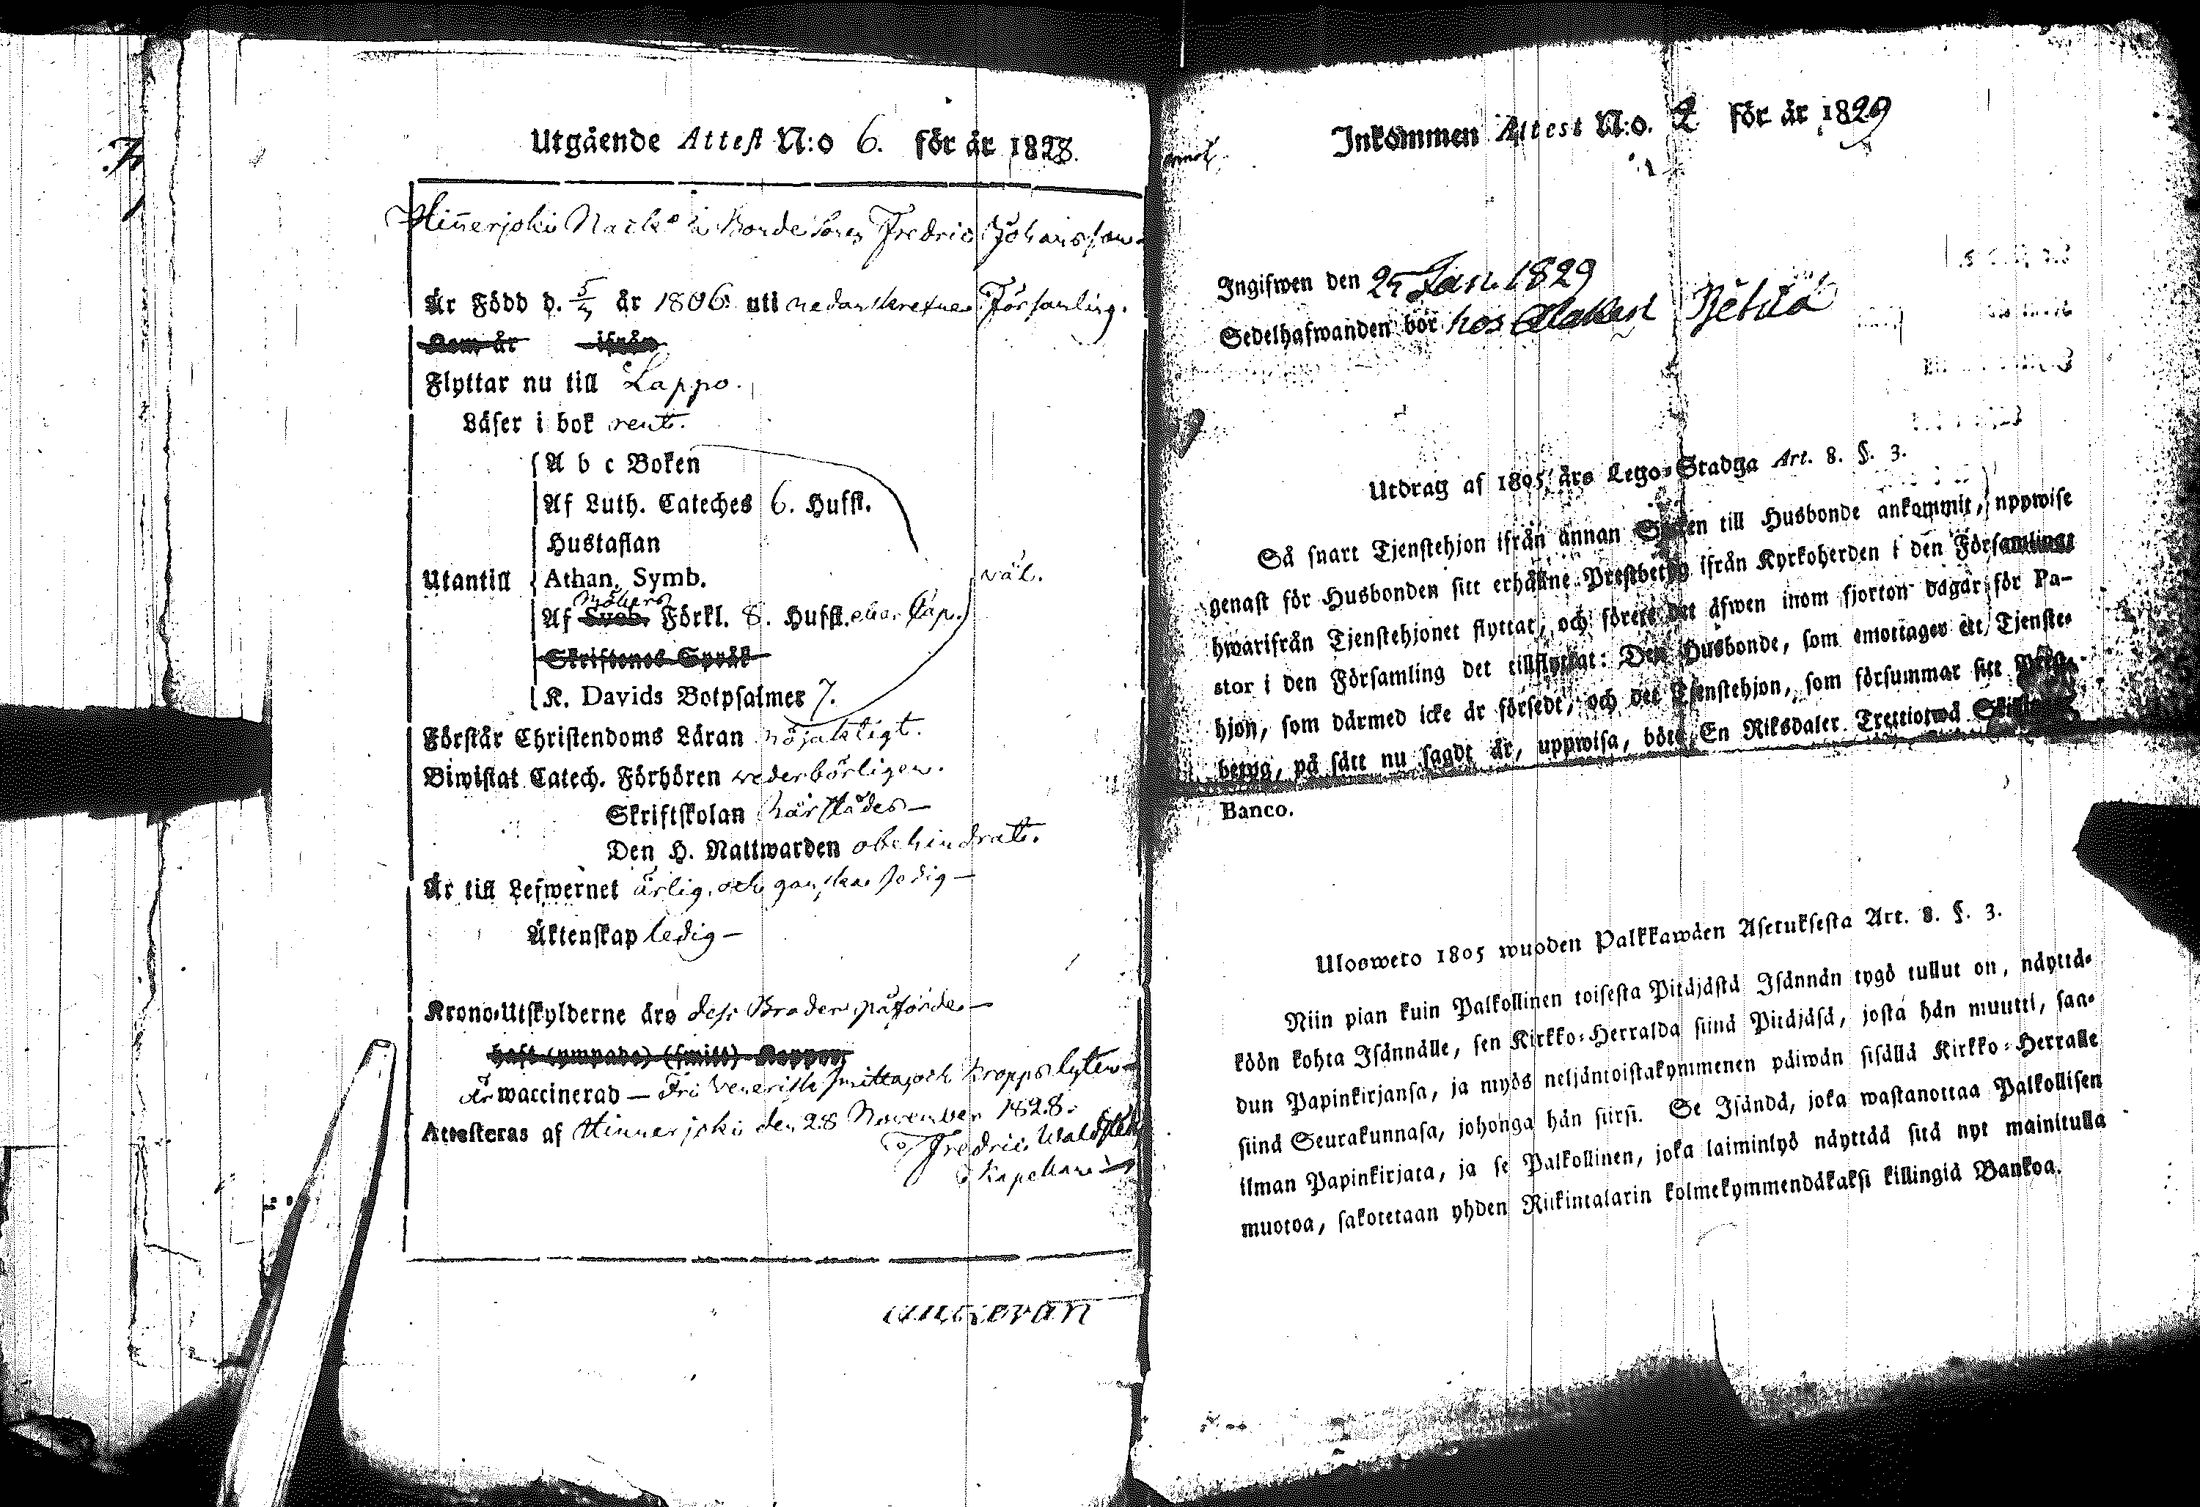 Utgående Attest N:o 6. för år 1828.
Hinerjoki Nack Bonde Sonen Fredric Johansson
Är Född d. 5/7 år 1806. uti nedanskrefne Församling.
Kom år ifrån
Flyttar nu till Lappo.
Läser i bok rent.
A b c Boken
Af Luth. Cateches 6. Hufst.
Hustaflan
Utantill Athan. Symb. väl.
Möllers
Af Sveb. Förkl. 8. Hufst. eller Cap.
Skriftenes Språk
K. Davids Botpsalmer 7.
Förstår Christendoms Läran nöjaktigt.
Biwistat Catech. Förhören wederbörligen.
Skriftskolan härstädes —
Den H. Nattwarden obehindrat.
Är till Lefwernet ärlig, och ganska sedig —
Äktenskap ledig —
Krono-Utskylderne äro dess Broder påförde —
haft (ympade) (smitt) Koppor
är waccinerad — Fri venerisk smitta och kroppslyten
Attesteras af Hinnerjoki den 28 November 1828.
Fredric
Kapellan
Inkommen Attest N:o. 2 för år 1829
Ingifwen den 25 Jan. 1829
Sedelhafwanden bor hos
Utdrag af 1805 års Lego-Stadga Art. 8. §. 3.
Så snart Tjenstehjon ifrån annan Socken till Husbonde ankommit, uppwise
genast för Husbonden sitt erhållne Prestbetyg ifrån Kyrkoherden i den Församling,
hwarifrån Tjenstehjonet flyttat, och förete det äfwen inom fjorton dagar för Pa-
stor i den Församling det tillflyttat: Den Husbonde, som emottager ett Tjenste-
hjon, som därmed icke är försedt, och det Tjenstehjon, som försummar sitt Prest-
betyg, på sätt nu sagdt är, uppwisa, böte En Riksdaler Trettiotwå Skillingar
Banco.
Ulosweto 1805 wuoden Palkkawäen Asetuksesta Art. 8. §. 3.
Niin pian kuin Palkollinen toisesta Pitäjästä Isännän tygö tullut on, näyttä-
köön kohta Isännälle, sen Kirkko-Herralda siinä Pitäjäsä, josta hän muutti, saa-
dun Papinkirjansa, ja myös neljäntoistakymmenen päiwän sisällä Kirkko-Herralle
siinä Seurakunnasa, johonga hän siirsi. Se Isändä, joka wastanottaa Palkollisen
ilman Papinkirjata, ja se Palkollinen, joka laiminlyö näyttää sitä nyt mainitulla
muotoa, sakotetaan yhden Riikintalarin kolmekymmendäkaksi killingiä Bankoa.